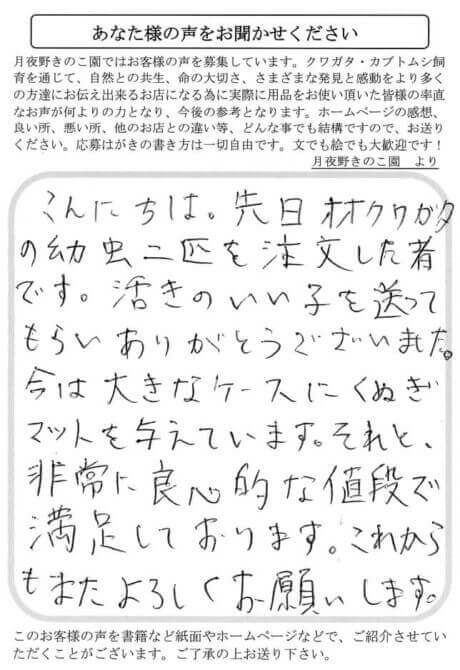 あなた様の声をお聞かせください
月夜野きのこ園ではお客様の声を募集しています。クワガタ・カブトムシ飼
育を通じて、自然との共生、命の大切さ、さまざまな発見と感動をより多く
の方達にお伝え出来るお店になる為に実際に用品をお使い頂いた皆様の率直
なお声が何よりの力となり、今後の参考となります。ホームページの感想、
良い所、悪い所、他のお店との違い等、どんな事でも結構ですので、お送り
ください。応募はがきの書き方は一切自由です。文でも絵でも大歓迎です！
月夜野きのこ園　より
こんにちは。先日オオクワガタ
の幼虫二匹を注文した者
です。活きのいい子を送って
もらいありがとうございました。
今は大きなケースにくぬぎ
マットを与えています。それと、
非常に良心的な値段で
満足しております。これから
もまたよろしくお願いします。
このお客様の声を書籍など紙面やホームページなどで、ご紹介させてい
ただくことがございます。ご了承の上お送り下さい。